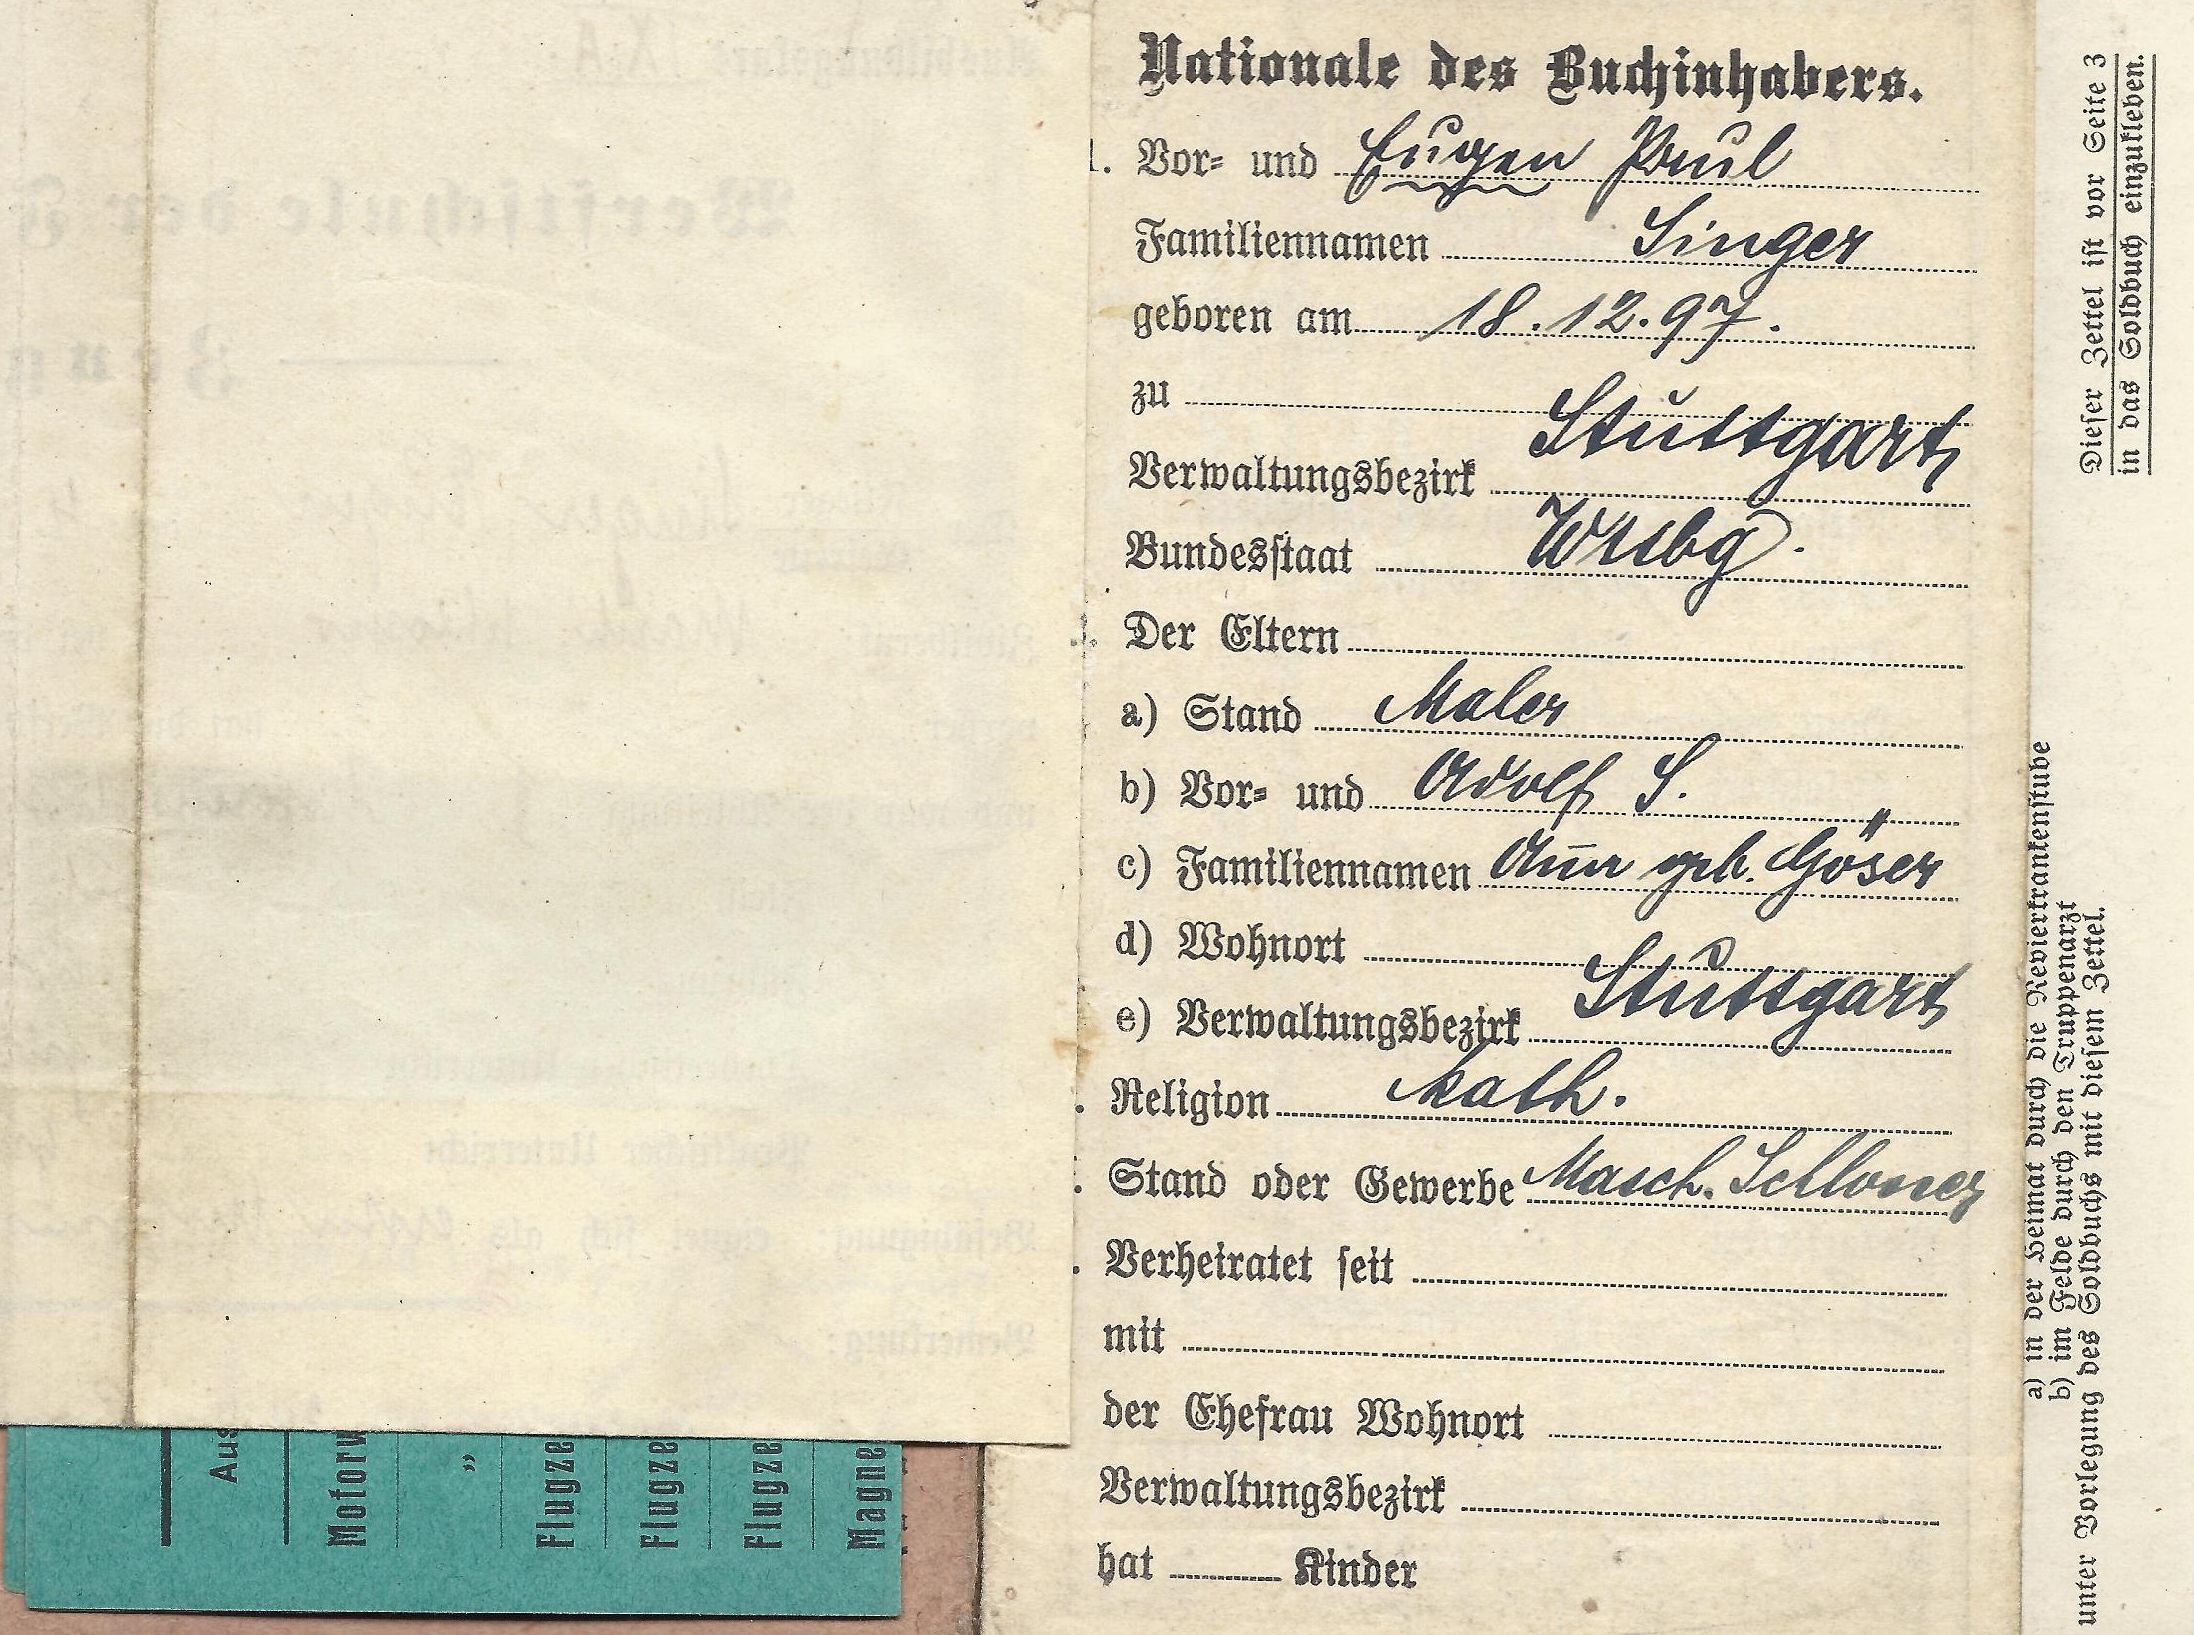 Nationale des Buchinhabers.
1. Vor- und Eugen Paul
Familiennamen Singer
geboren am 18.12.97.
zu Stuttgart
Verwaltungsbezirk
Bundesstaat Wttbg.
Der Eltern
a) Stand Maler
b) Vor- und Adolf S.
c) Familiennamen Anna geb. Göser
d) Wohnort
e) Verwaltungsbezirk Stuttgart
Religion kath.
Stand oder Gewerbe Masch. Schlosser
Verheiratet seit
mit
der Ehefrau Wohnort
Verwaltungsbezirk
hat Kinder
Dieser Zettel ist vor Seite 3
in das Soldbuch einzukleben.
a) in der Heimat durch die Revierkrankenstube
b) im Felde durch den Truppenarzt
unter Vorlegung des Soldbuchs mit diesem Zettel.
Aus
Motorw
"
Flugze
Flugze
Flugze
Magne